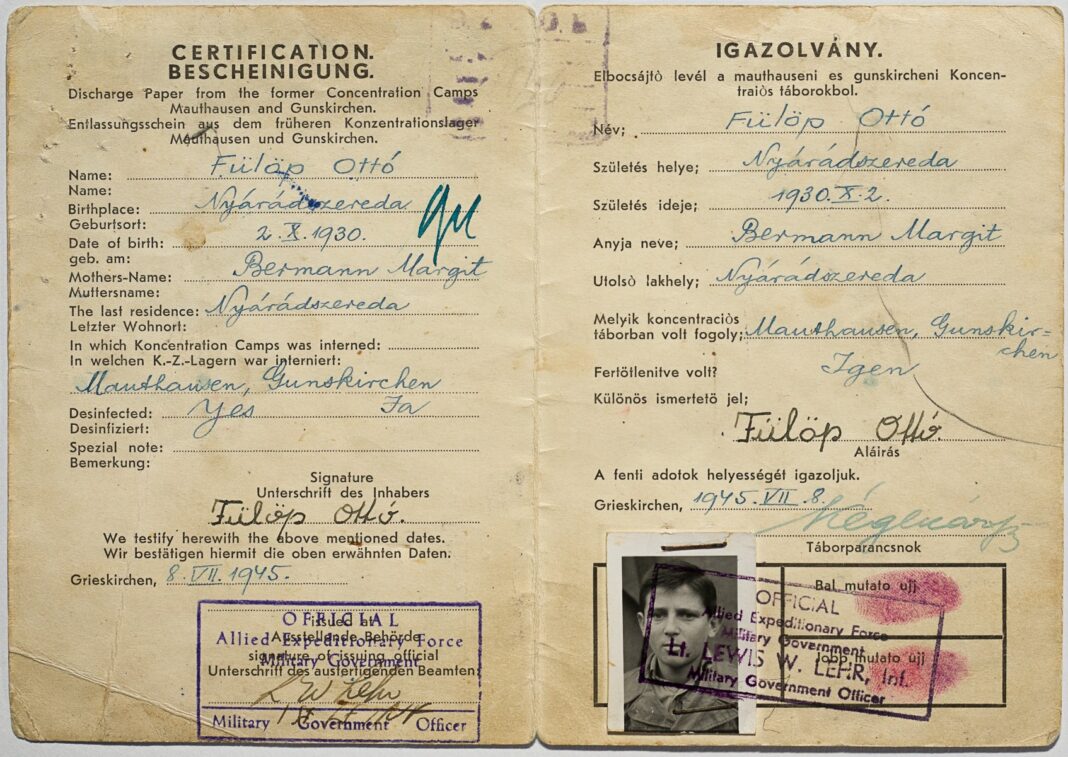 CERTIFICATION.
BESCHEINIGUNG.
Discharge Paper from the former Concentration Camps
Mauthausen and Gunskirchen.
Entlassungsschein aus dem früheren Konzentrationslager
Mauthausen und Gunskirchen.
Name: Fülöp Ottó
Name:
Birthplace: Nyárádszereda
Geburtsort:
Date of birth: 2.X.1930.
geb. am:
Mothers-Name: Bermann Margit
Muttersname:
The last residence: Nyárádszereda
Letzter Wohnort:
In which Koncentration Camps was interned:
In welchen K.-Z.-Lagern war interniert:
Mauthausen, Gunskirchen
Desinfected: Yes Ja
Desinfiziert:
Spezial note:
Bemerkung:
Signature
Unterschrift des Inhabers
Fülöp Ottó.
We testify herewith the above mentioned dates.
Wir bestätigen hiermit die oben erwähnten Daten.
Grieskirchen, 8.VII.1945.
OFFICIAL
issued by
Allied Expeditionary Force
Ausstellende Behörde
Military Government
signature of issuing official
Unterschrift des ausfertigenden Beamten
L W Lehr
Military Government Officer
IGAZOLVÁNY.
Elbocsájtò levél a mauthauseni es gunskircheni Koncen-
traiòs táborokbol.
Név; Fülöp Ottó
Születés helye; Nyárádszereda
Születés ideje; 1930.X.2.
Anyja neve; Bermann Margit
Utolsò lakhely; Nyárádszereda
Melyik koncentraciòs
táborban volt fogoly; Mauthausen, Gunskir-
chen
Fertötlenitve volt? Igen
Különös ismertetö jel;
Fülöp Ottó.
Aláirás
A fenti adotok helyességét igazoljuk.
Grieskirchen, 1945.VII.8.
Táborparancsnok
Bal mutato ujj
Jobb mutato ujj
OFFICIAL
Allied Expeditionary Force
Military Government
Lt. LEWIS W. LEHR, Inf.
Military Government Officer